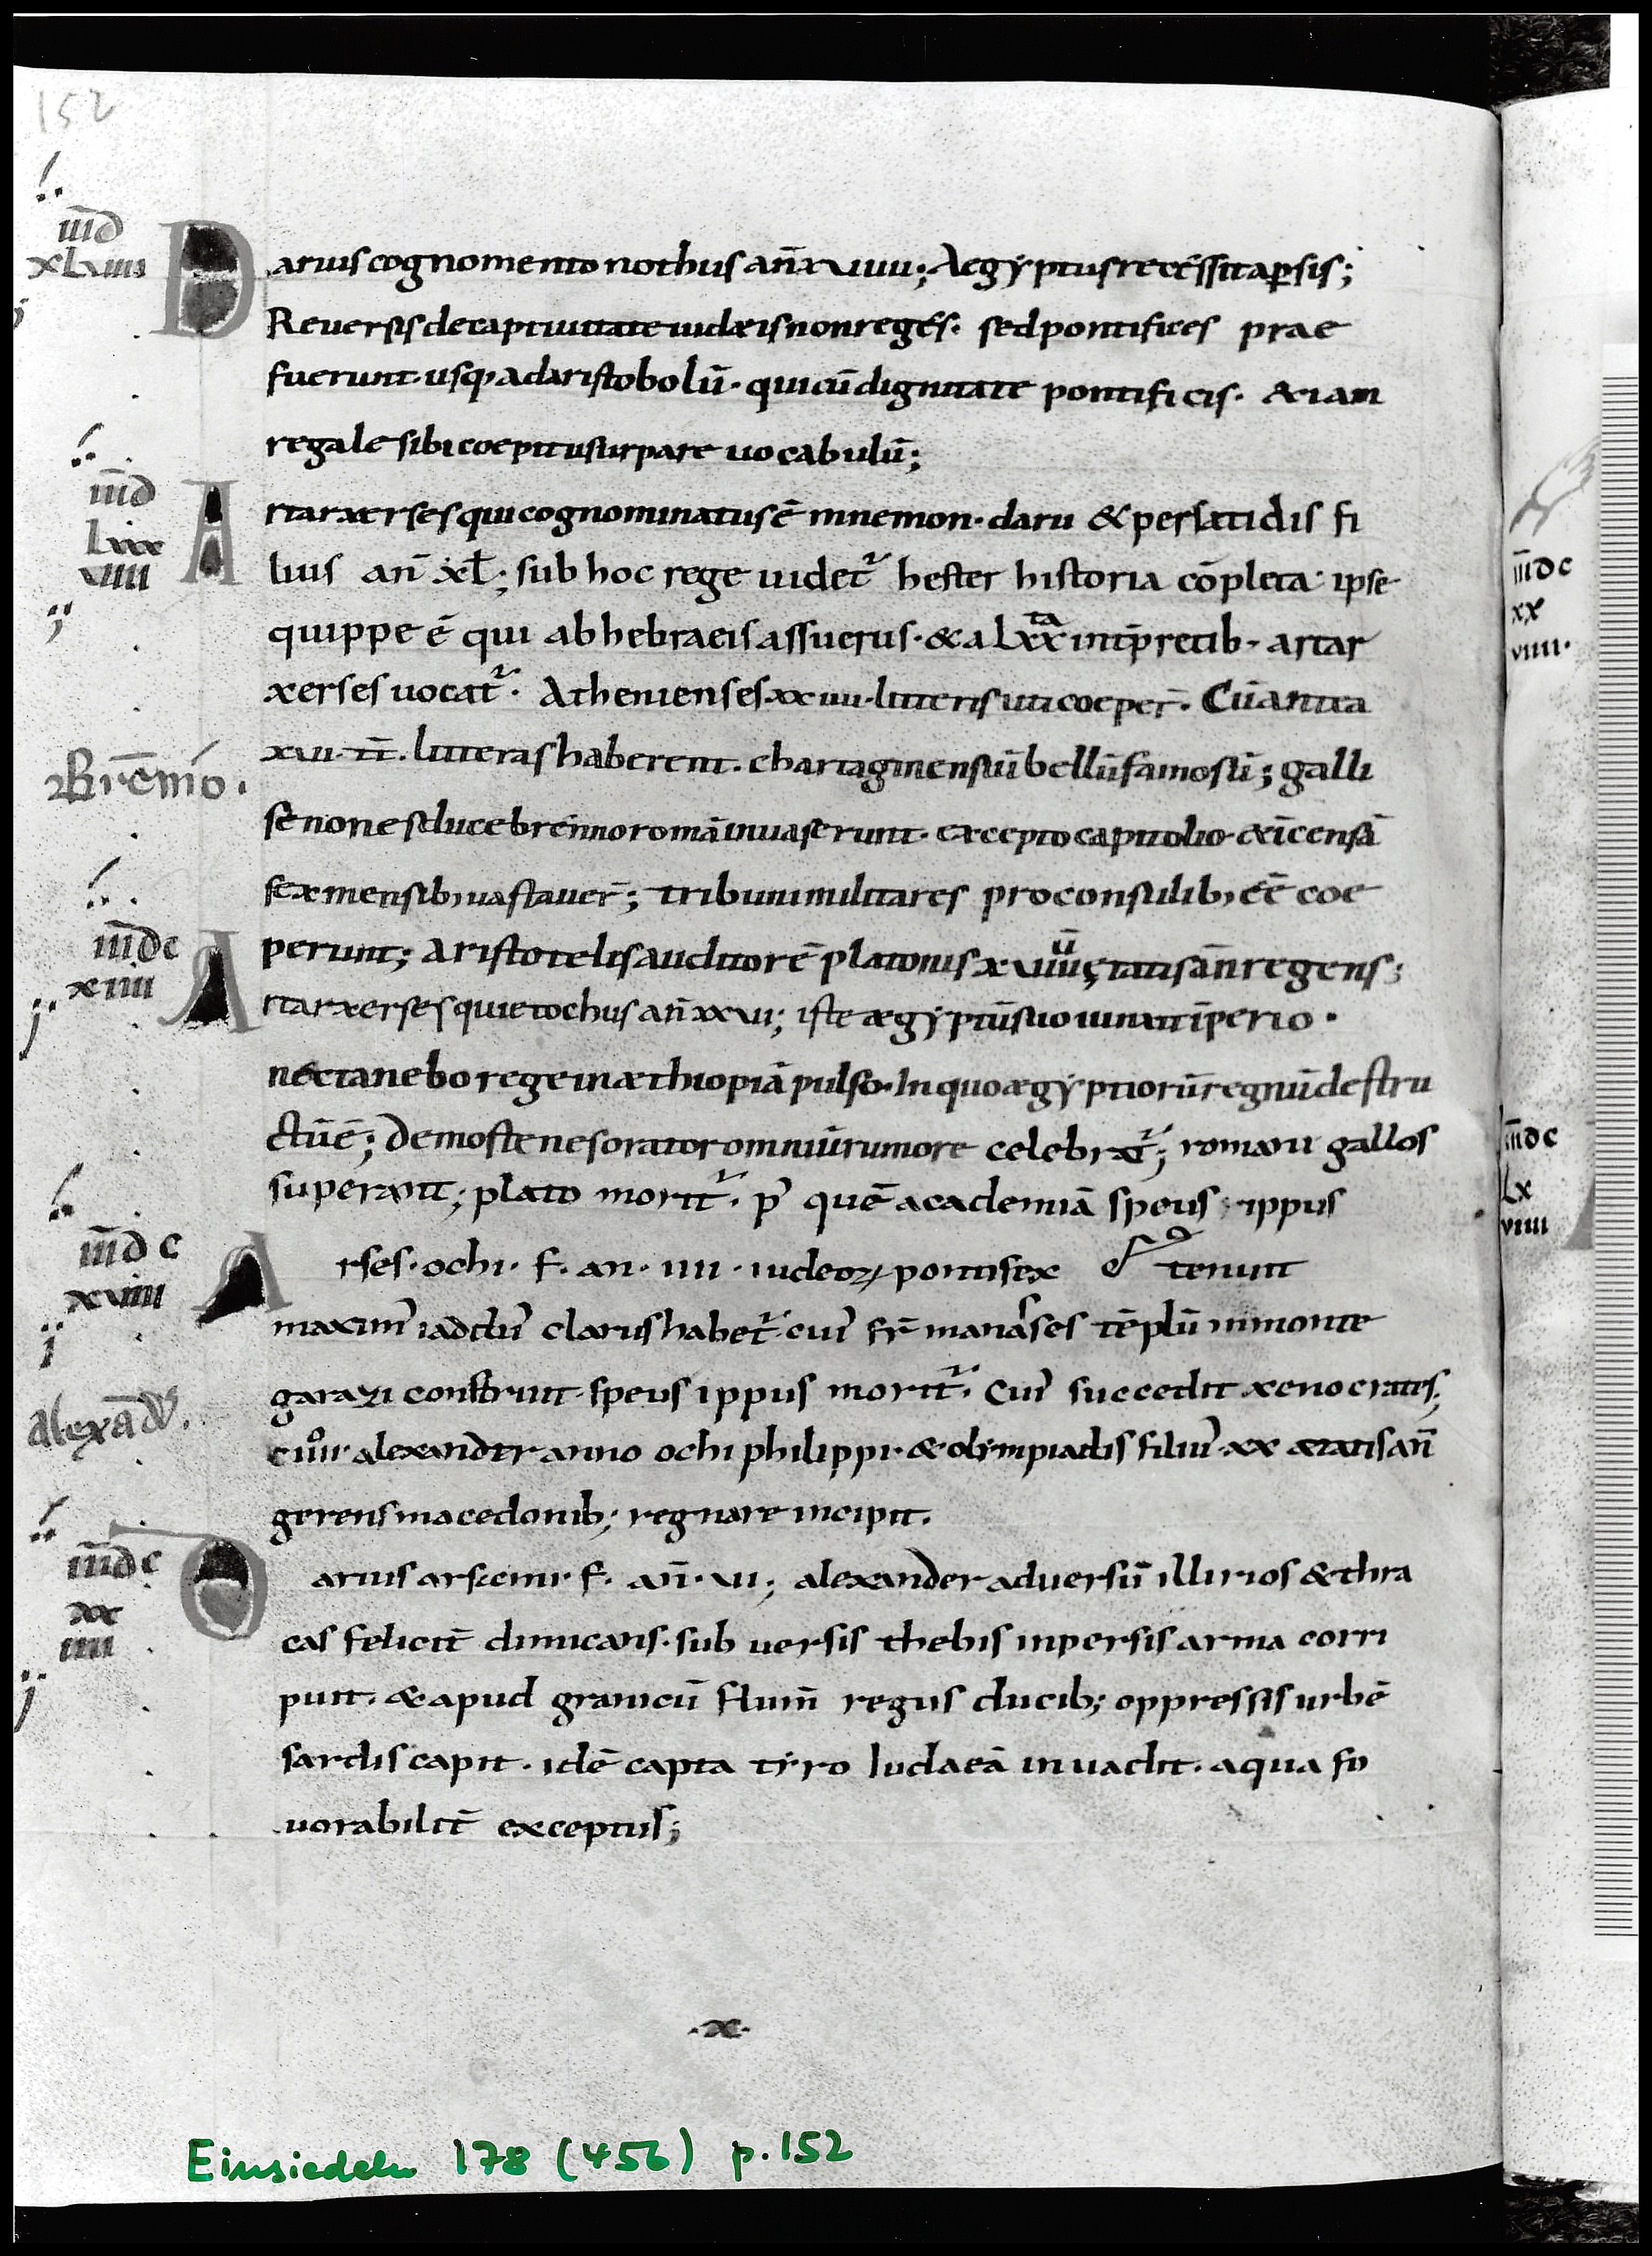 152
iiīd
xlviiii
Darius cognomento nothus an̄ xviiii; Aegyptus recessit a ꝑsis;
Reuersis de captiuitate iudæis non reges. sed pontifices prae
fuerunt. usq; ad aristobolū. qui cū dignitate pontificis. &iam
regale sibi coepit usurpare uocabulū;
iiīd
lxx
viiii
Artarxerses qui cognominatus ē mnemon. darii & persatidis fi
lius an̄ xl; sub hoc rege uidet᷑ hester historia cōpleta. ipse
quippe ē qui ab hebraeis assuerus. & a lxxta int̄pretib. artar
xerses uocat᷑. Athenienses xxiiii litteris uti coeper̄. Cū antea
xvi tī. litteras haberent. chartaginensiū bellū famosū; galli
Brēnio.
senones duce brenno romā inuaserunt. excepto capitolio & īcensā
sex mensib; uastauer̄; tribuni militares pro consulib; eē coe
iiīdc
xiiii
perunt; aristotelis auditorē platonis xviiiū ętatis an̄ regens;
Artarxerses qui et ochus an̄ xxvi; iste ægyptū suo iunxit īperio.
nectanebo rege in æthiopiā pulso. In quo ægyptiorū regnū destru
ctū ē; Demostenes orator omniū rumore celebrat᷑; romani gallos
superant; plato morit᷑. p᾽ quē academiā speus; ippus
iiīdc
xviii
Arses. ochi. f. an. iiii. iudeoꝝ pontifex tenuit
maxim᾽ iaddu᾽ clarus habet᷑. cui᾽ fr̄ manasses tēplū in monte
garazi construit. speus ippus morit᷑. Cui᾽ succedit xenocratis;
Alexādr̄.
alexander anno ochi philippi. & olympiadis filiu᾽ xx ætatis an̄
gerens macedonib; regnare incipit.
iiīdc
xx
iiii
Darius arsemi. f. an̄. vi; alexander aduersū illirios & thra
cas felicit̄ dimicans. sub uersis thebis in persis arma corri
puit. & apud granicū flum̄ regiis ducib; oppressis urbē
sardis capit. idē capta tyro Iudaeā inuadit. a qua fa
uorabilit̄ exceptus;
.x.
Einsiedeln 178 (456) p.152
iiīdc
xx
viiii.
iiīdc
lx
viiii